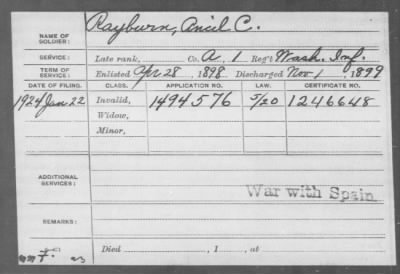 Rayburn, Ancil C.
NAME OF SOLDIER:
SERVICE: Late rank, Co. A, 1 Reg't Wash. Inf.
TERM OF SERVICE: Enlisted Apr 28, 1898 Discharged Nov 1, 1899
DATE OF FILING. CLASS. APPLICATION NO. LAW. CERTIFICATE NO.
1924 Jan 22 Invalid, 1494576 5/20 1246648
Widow,
Minor,
ADDITIONAL SERVICES:
War with Spain
REMARKS:
Died , 1 , at